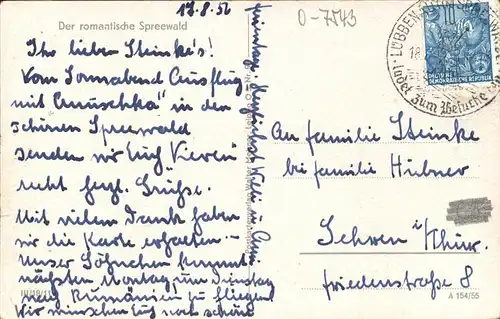 17.8.56
Der romantische Spreewald
O-7543
Ihr lieben Steinke's!
Vom Sonnabend Ausflug
mit "Anuschka" in den
schönen Spreewald
senden wir Euch Vieren
recht hzgl. Grüße.
Mit vielem Dank haben
wir die Karte erhalten.-
Unser Söhnchen kommt
nächsten Montag, um Dienstag
nach Rumänien zu fliegen.
Wir wünschen Euch noch schöne
Willi u.
LÜBBEN
10
DEUTSCHE
DEMOKRATISCHE REPUBLIK
ladet zum Besuche
An Familie Steinke
bei Familie Hübner
Schwen i/Thür.
Friedenstraße 8
III/18/
A 154/55